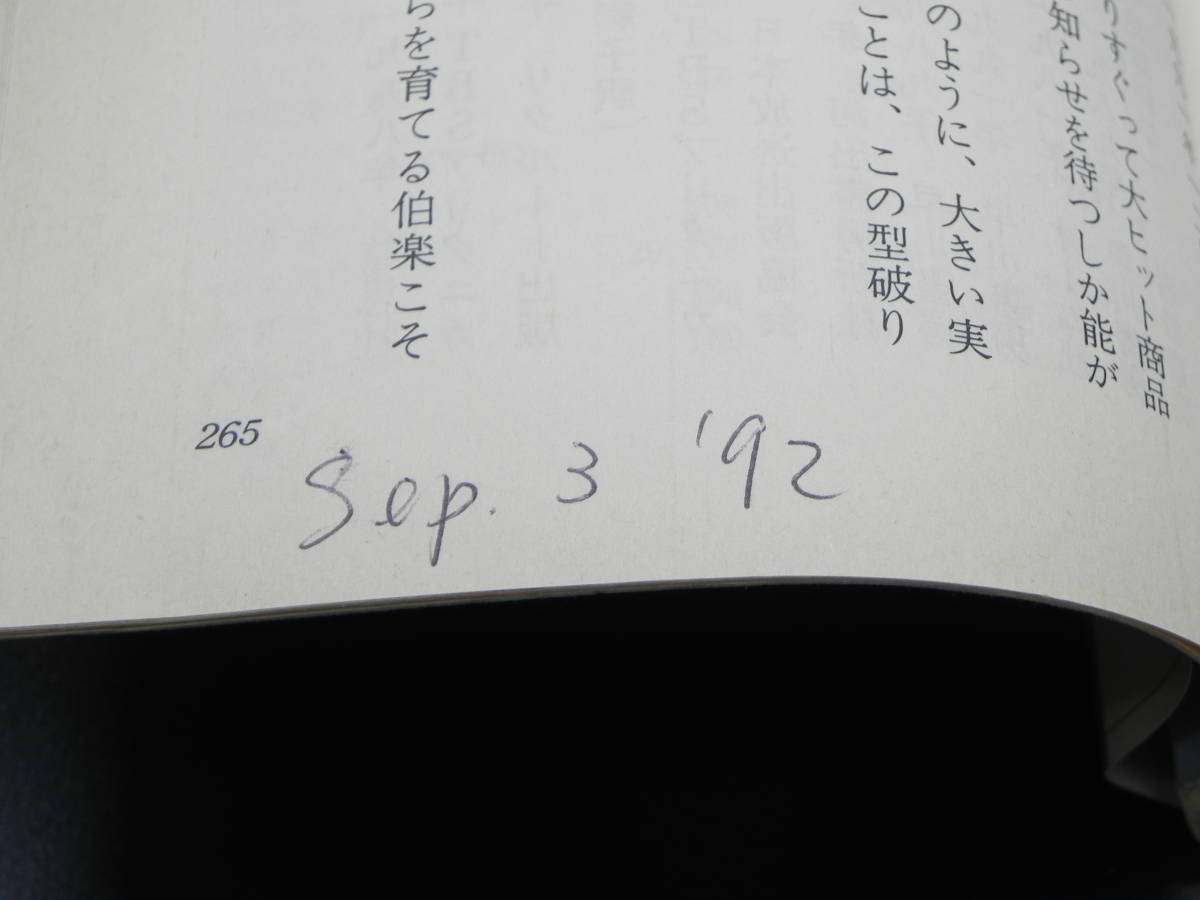 りすぐって大ヒット商品
知らせを待つしか能が
のように、大きい実
ことは、この型破り
らを育てる伯楽こそ
265
Sep. 3 '92